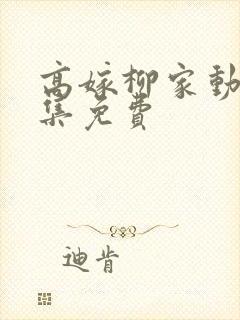 高嫁柳家動
集免費
迪肯